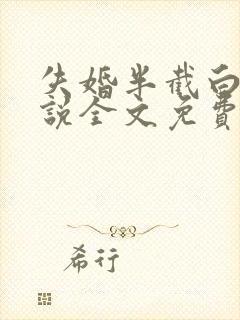 失婚半截白
说全文免费
希行